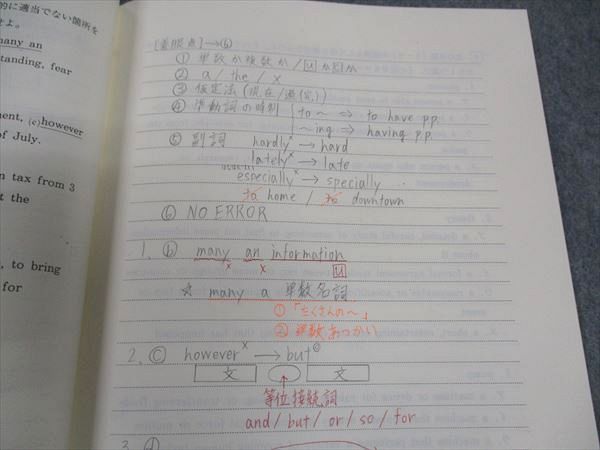 的に適当でない箇所を
せよ。
many an
standing, fear
ment, (c)however
of July.
n tax from 3
t the
, to bring
for
[着眼点]→⑥
① 単数か複数か/UかCか
② a / the / x
③ 仮定法(現在/過完)
④ 準動詞の時制 to~ ⇒ to have p.p.
~ing ⇒ having p.p.
⑤ 副詞 hardly× → hard
lately× → late
especially× → specially
to home / to downtown
⑥ NO ERROR
1. ⓑ many an information
× × U
☆ many a 単数名詞
① 「たくさんの~」
② 単数あつかい
2. ⓒ however× → but
文 文
等位接続詞
and / but / or / so / for
3. ⓓ